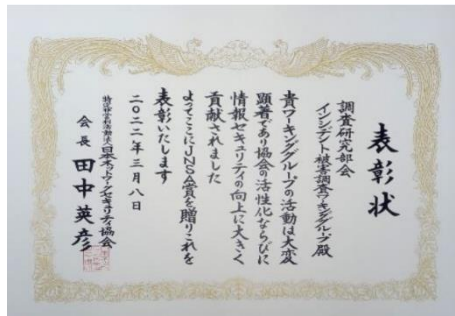 表彰状
調査研究部会
インシデント被害調査ワーキンググループ殿
貴ワーキンググループの活動は大変
顕著であり協会の活性化ならびに
情報セキュリティの向上に大きく
貢献されました
よってここにJNSA賞を贈りこれを
表彰いたします
二〇二二年三月八日
特定非営利活動法人日本ネットワークセキュリティ協会
会長 田中英彦